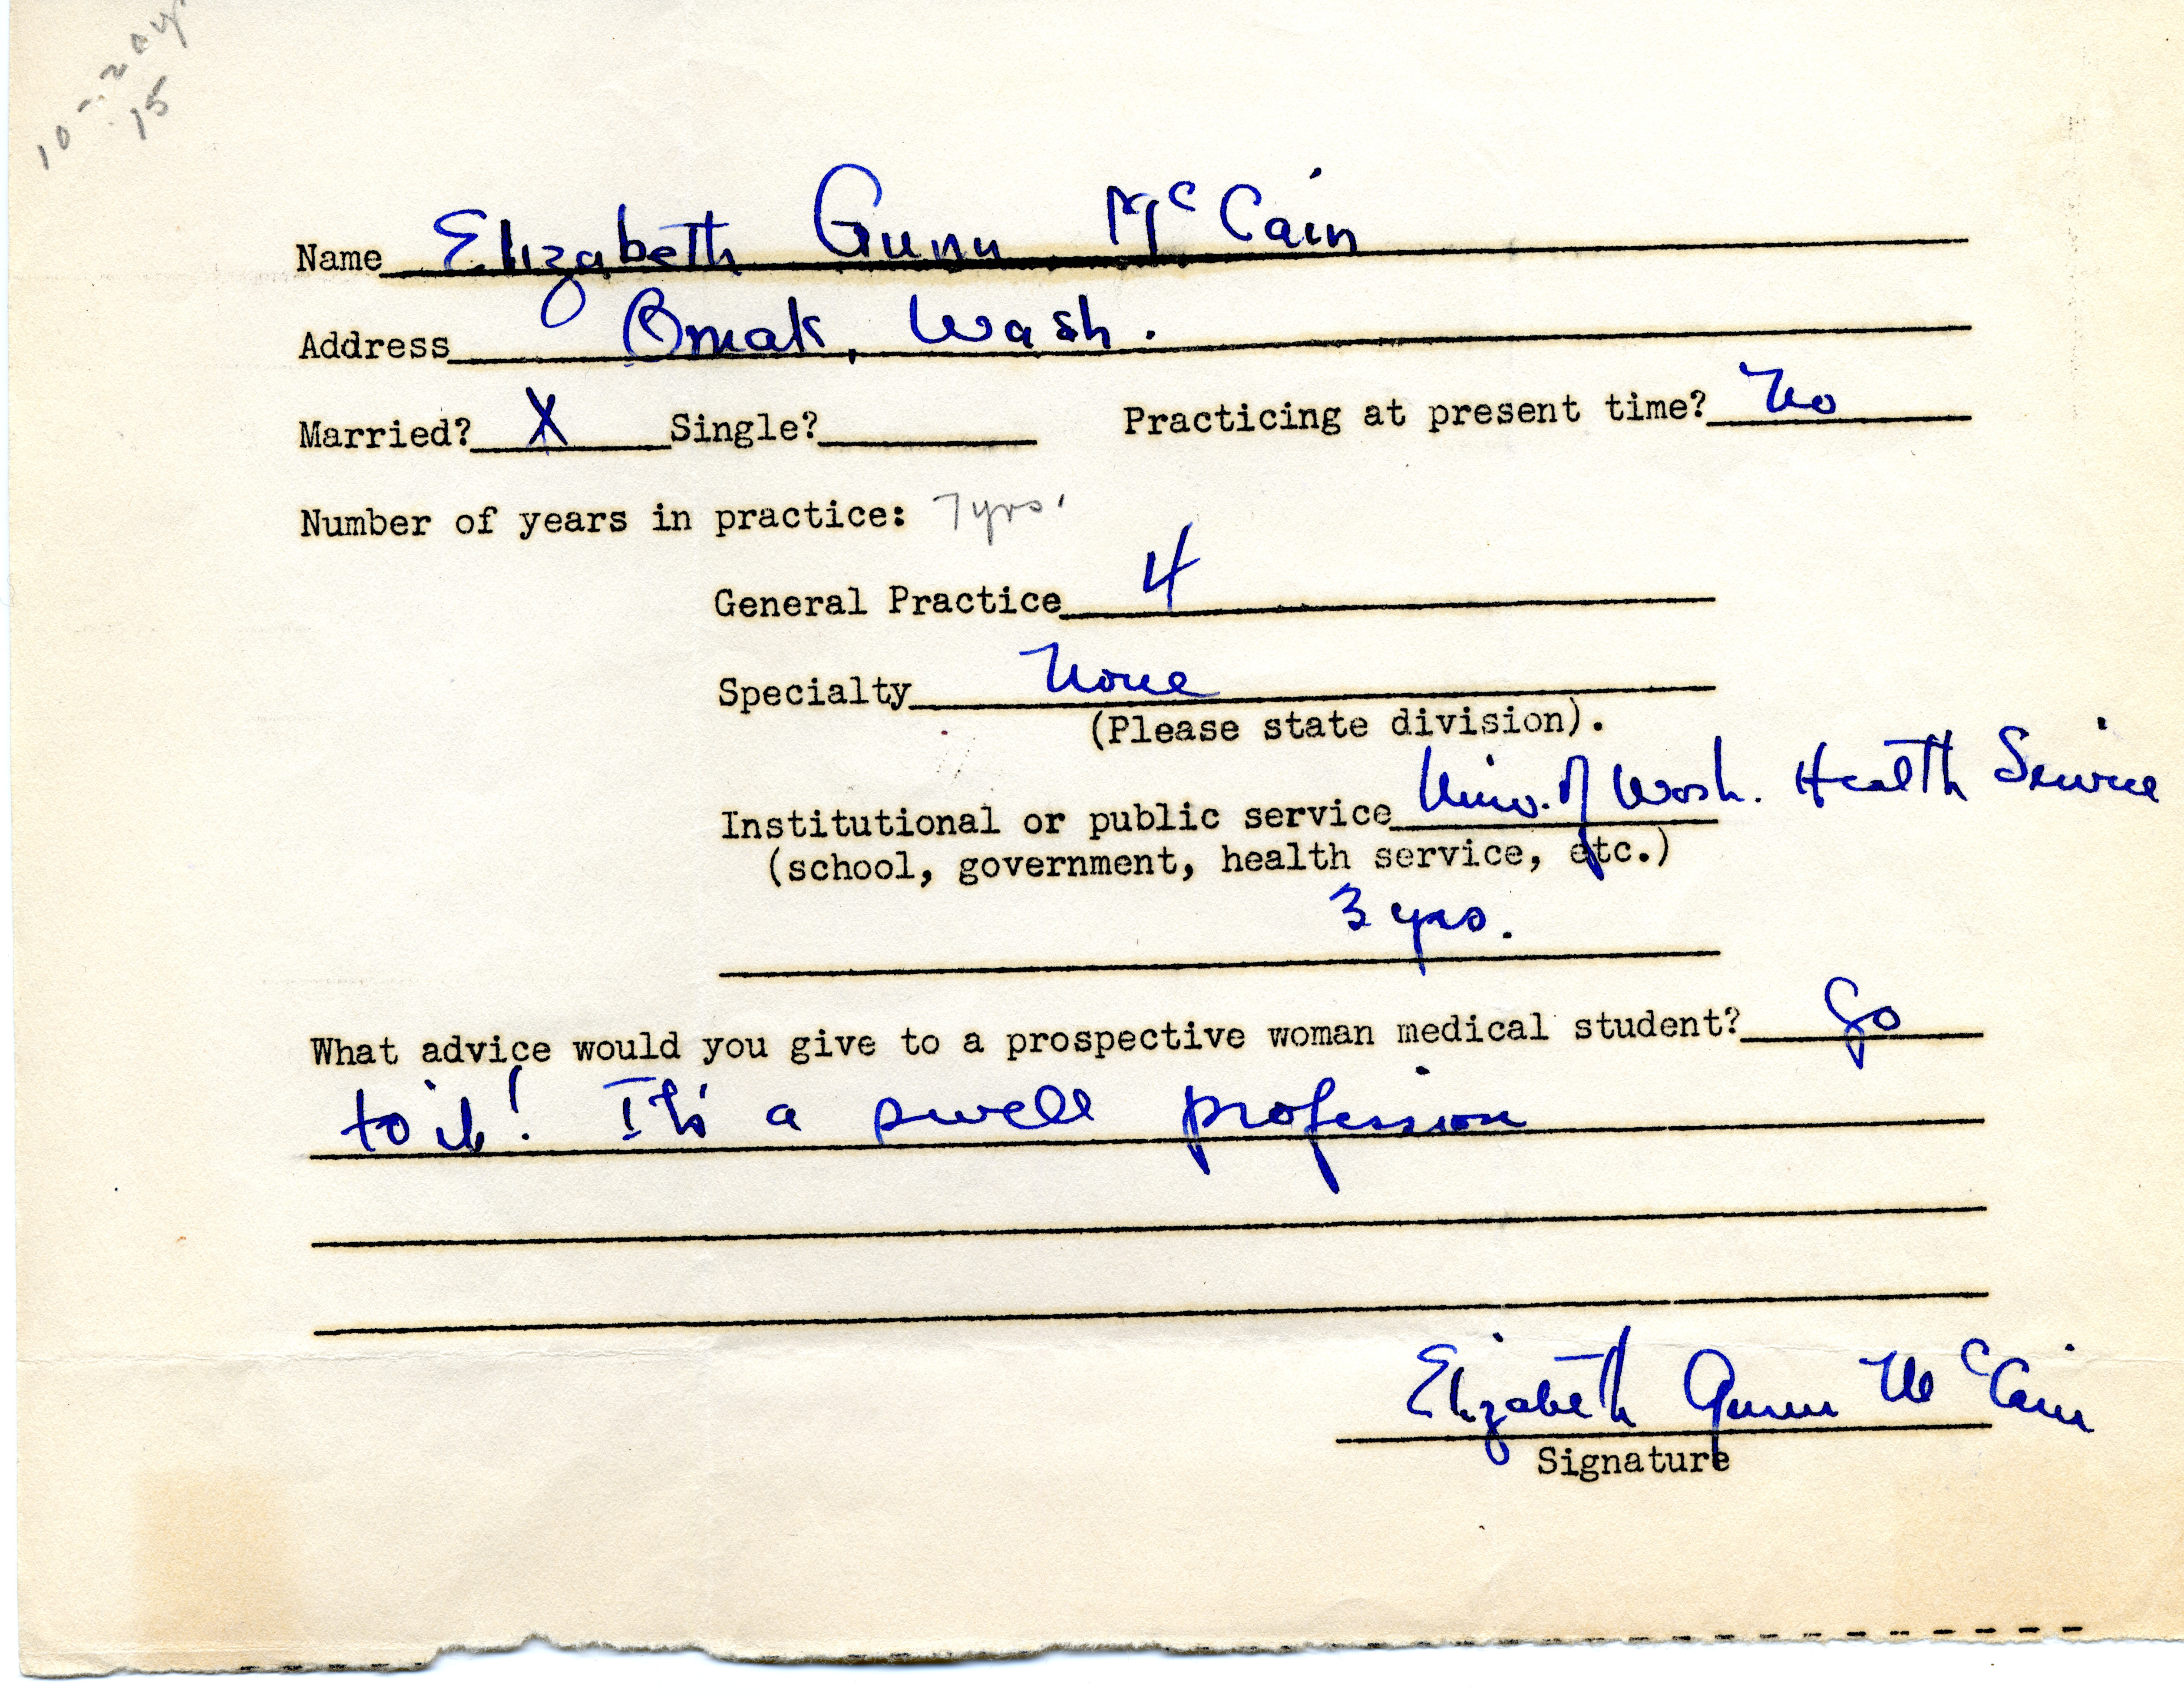 10-20 yr
15
Name Elizabeth Gunn McCain
Address Omak, Wash.
Married? X Single? Practicing at present time? No
Number of years in practice: 7 yrs.
General Practice 4
Specialty None
(Please state division).
Institutional or public service Univ. of Wash. Health Service
(school, government, health service, etc.)
3 yrs.
What advice would you give to a prospective woman medical student? Go
to it! It's a swell profession
Elizabeth Gunn McCain
Signature